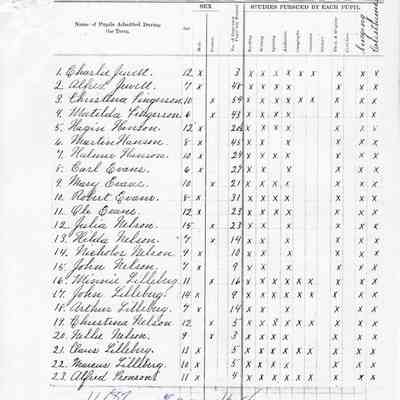 SEX STUDIES PURSUED BY EACH PUPIL
Name of Pupils Admitted During the Term. Age Male Female Reading Writing Spelling Arithmetic Geography Grammar History
1. Charlie Jewell. 12 x 3 x x x x x x x x x
2. Alfred Jewell. 7 x 48 x x x x x x x
3. Christina Lingerson. 10 x 59 x x x x x x x x x
4. Matilda Lingerson 6 x 43 x x x x x x x
5. Hagin Hanson. 12 x x x x x x x x
6. Martin Hanson. 8 x 45 x x x x x x
7. Halmer Hanson. 10 x 24 x x x x x x x
8. Carl Evans. 6 x 27 x x x x x x
9. Mary Evans. 10 x 21 x x x x x x x
10. Robert Evans. 8 x 31 x x x x x x x
11. Ole Evans. 12 x 23 x x x x x x x
12. Julia Nelson. 15 x 23 x x x x x x
13. Hilda Nelson. 7 x 14 x x x x x x
14. Nicholas Nelson. 9 x 10 x x x x x x
15. John Nelson. 7 x 9 x x x x x
16. Minnie Lilleberg. 11 x 16 x x x x x x x x x
17. John Lilleberg. 14 x 9 x x x x x x x x x
18. Arthur Lilleberg. 7 x 14 x x x x x x
19. Christina Nelson 12 x 5 x x x x x x x x x
20. Nellie Nelson. 9 x 3 x x x x x x x
21. Claus Lilleberg. 13 x 5 x x x x x x x x x
22. Marcus Lilleberg. 10 x 5 x x x x x x x
23. Alfred Pearson 11 x 4 x x x x x x x x x